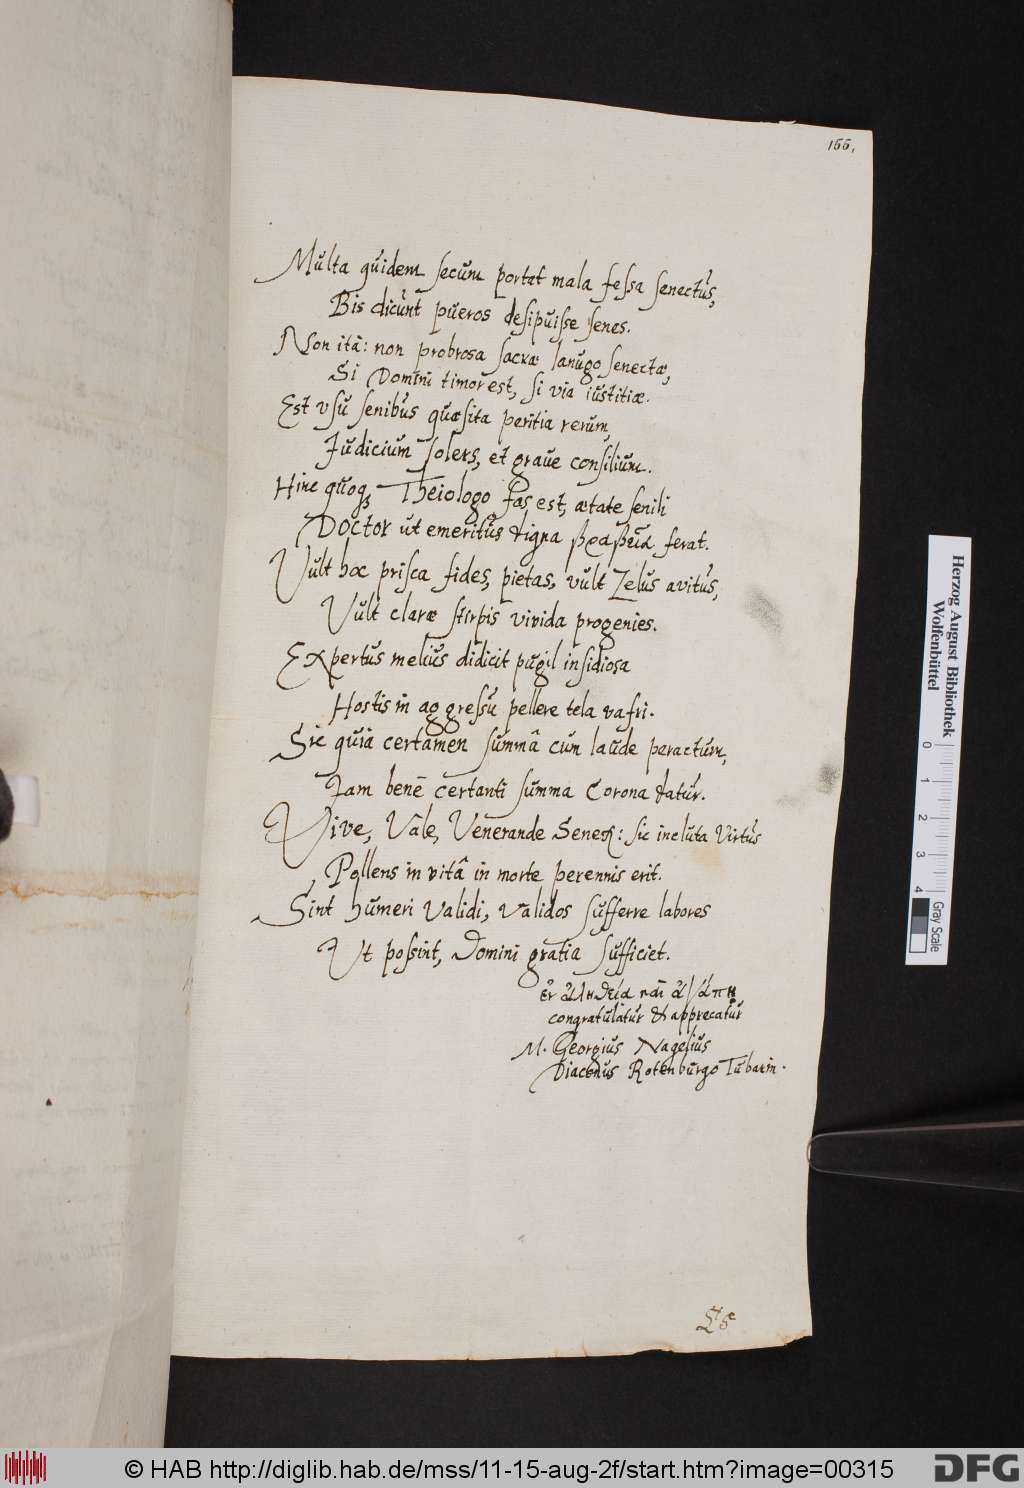 155.
Multa quidem secum portat mala fessa senectus,
Bis dicunt pueros desipuisse senes.
Non itâ: non probrosa sacræ lanugo senectæ,
Si Domini timor est, si via iustitiæ.
Est vsu senibus quæsita peritia rerum,
Judicium solers, et graue consilium.
Hinc quoq; Theologo fas est, ætate senili
Doctor ut emeritus digna βραβεῖα ferat.
Vult hoc prisca fides, pietas, vult Zelus avitus,
Vult claræ stirpis vivida progenies.
Expertus melius didicit pugil insidiosa
Hostis in aggressu pellere tela vafri.
Sic quia certamen summâ cum laude peractum,
Jam benè certanti summa Corona datur.
Vive, Vale, Venerande Senex: sic incluta Virtus
Pollens in vitâ in morte perennis erit.
Sint humeri Validi, Validos sufferre labores
Ut possint, Domini gratia sufficiet.
ἐν ἀληθείᾳ καὶ ἀγάπῃ
congratulatur & apprecatur
M. Georgius Nagelius
Diaconus Rotenburgo Tubarin.
Herzog August Bibliothek
Wolfenbüttel
0 1 2 3 4
Gray Scale
© HAB http://diglib.hab.de/mss/11-15-aug-2f/start.htm?image=00315
DFG